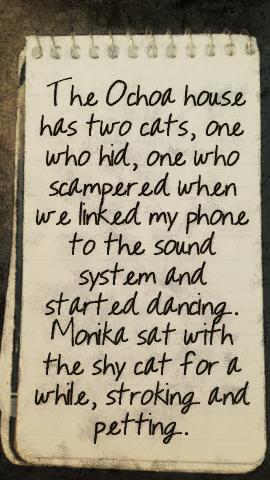 The Ochoa house
has two cats, one
who hid, one who
scampered when
we linked my phone
to the sound
system and
started dancing.
Monika sat with
the shy cat for a
while, stroking and
petting.